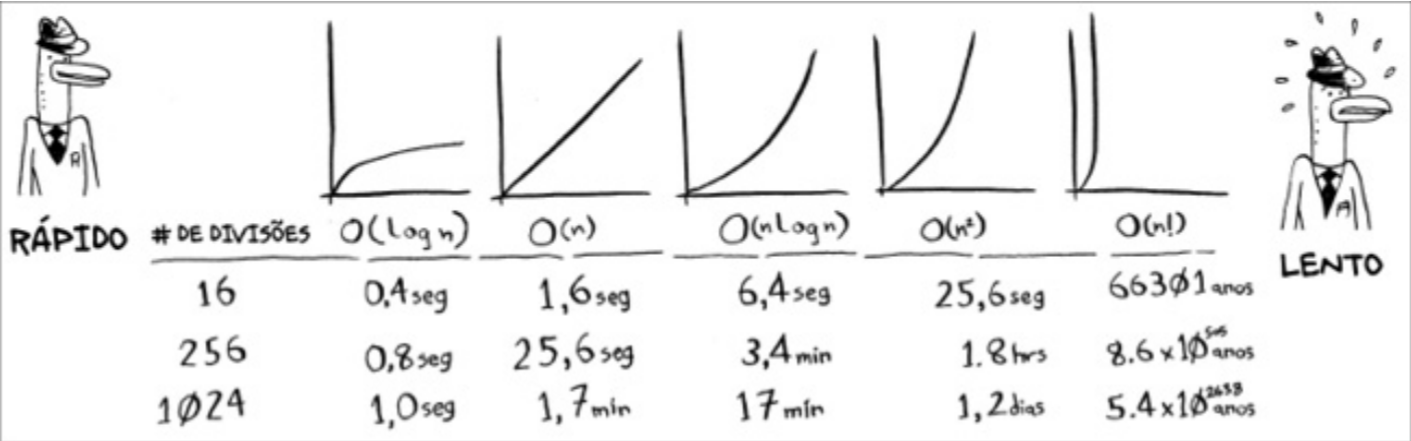 RÁPIDO # DE DIVISÕES O(log n) O(n) O(n log n) O(n²) O(n!) LENTO
16 0,4 seg 1,6 seg 6,4 seg 25,6 seg 66301 anos
256 0,8 seg 25,6 seg 3,4 min 1.8 hrs 8.6 x 10⁵⁰⁵ anos
1024 1,0 seg 1,7 min 17 min 1,2 dias 5.4 x 10²⁶³⁸ anos